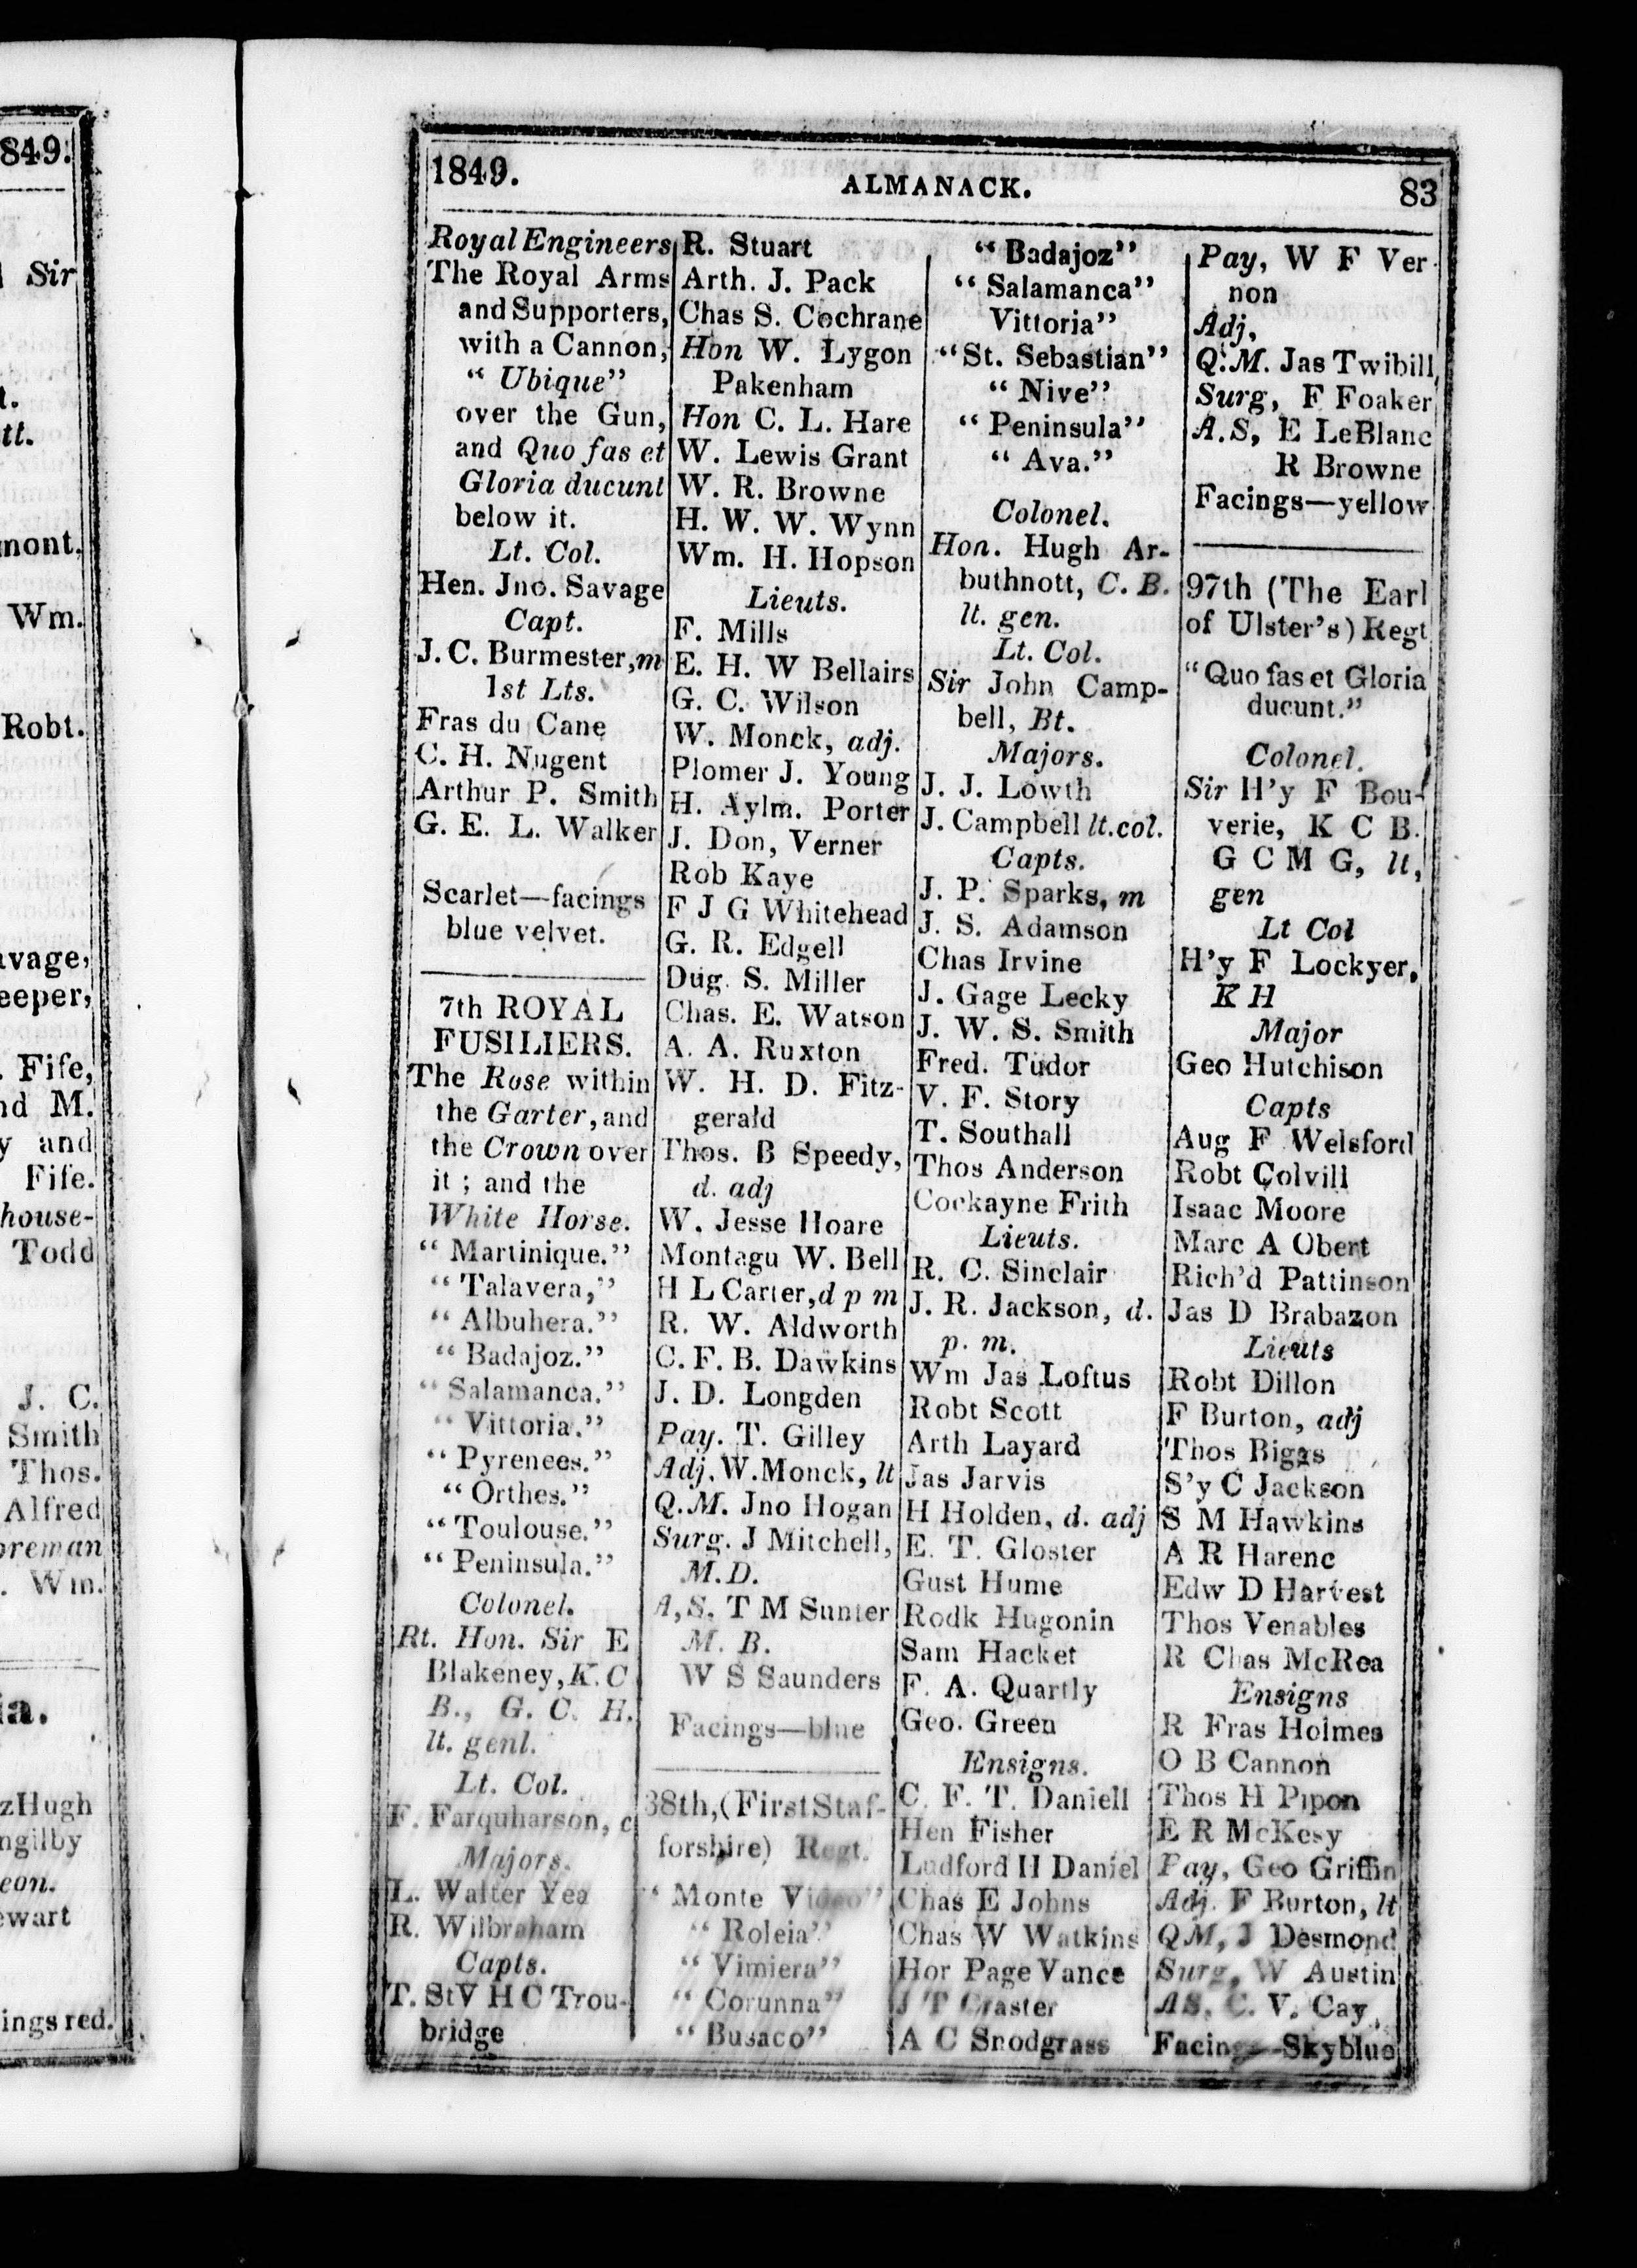 849.
Sir
tt.
mont.
Wm.
Robt.
avage,
eeper,
. Fife,
nd M.
y and
Fife.
house-
Todd
J. C.
Smith
Thos.
Alfred
oreman
. Wm.
ia.
zHugh
ngilby
eon.
ewart
ings red.
1849.
ALMANACK.
83
Royal Engineers
The Royal Arms
and Supporters,
with a Cannon,
" Ubique"
over the Gun,
and Quo fas et
Gloria ducunt
below it.
Lt. Col.
Hen. Jno. Savage
Capt.
J. C. Burmester, m
1st Lts.
Fras du Cane
C. H. Nugent
Arthur P. Smith
G. E. L. Walker
Scarlet—facings
blue velvet.
7th ROYAL
FUSILIERS.
The Rose within
the Garter, and
the Crown over
it ; and the
White Horse.
" Martinique."
" Talavera,"
" Albuhera."
" Badajoz."
" Salamanca."
" Vittoria."
" Pyrenees."
" Orthes."
" Toulouse."
" Peninsula."
Colonel.
Rt. Hon. Sir E
Blakeney, K. C
B., G. C. H.
lt. genl.
Lt. Col.
F. Farquharson, c
Majors.
L. Walter Yea
R. Wilbraham
Capts.
T. StV H C Trou-
bridge
R. Stuart
Arth. J. Pack
Chas S. Cochrane
Hon W. Lygon
Pakenham
Hon C. L. Hare
W. Lewis Grant
W. R. Browne
H. W. W. Wynn
Wm. H. Hopson
Lieuts.
F. Mills
E. H. W Bellairs
G. C. Wilson
W. Monck, adj.
Plomer J. Young
H. Aylm. Porter
J. Don, Verner
Rob Kaye
F J G Whitehead
G. R. Edgell
Dug. S. Miller
Chas. E. Watson
A. A. Ruxton
W. H. D. Fitz-
gerald
Thos. B Speedy,
d. adj
W. Jesse Hoare
Montagu W. Bell
H L Carter, d p m
R. W. Aldworth
C. F. B. Dawkins
J. D. Longden
Pay. T. Gilley
Adj. W. Monck, lt
Q.M. Jno Hogan
Surg. J Mitchell,
M.D.
A,S. T M Sunter
M. B.
W S Saunders
Facings—blue
38th, (First Staf-
forshire) Regt.
" Monte Video"
" Roleia"
" Vimiera"
" Corunna"
" Busaco"
" Badajoz"
" Salamanca"
Vittoria"
"St. Sebastian"
" Nive"
" Peninsula"
" Ava."
Colonel.
Hon. Hugh Ar-
buthnott, C. B.
lt. gen.
Lt. Col.
Sir John Camp-
bell, Bt.
Majors.
J. J. Lowth
J. Campbell lt.col.
Capts.
J. P. Sparks, m
J. S. Adamson
Chas Irvine
J. Gage Lecky
J. W. S. Smith
Fred. Tudor
V. F. Story
T. Southall
Thos Anderson
Cockayne Frith
Lieuts.
R. C. Sinclair
J. R. Jackson, d.
p. m.
Wm Jas Loftus
Robt Scott
Arth Layard
Jas Jarvis
H Holden, d. adj
E. T. Gloster
Gust Hume
Rodk Hugonin
Sam Hacket
F. A. Quartly
Geo. Green
Ensigns.
C. F. T. Daniell
Hen Fisher
Ludford H Daniel
Chas E Johns
Chas W Watkins
Hor Page Vance
J T Craster
A C Snodgrass
Pay, W F Ver
non
Adj,
Q.M. Jas Twibill,
Surg, F Foaker
A.S, E LeBlanc
R Browne
Facings—yellow
97th (The Earl
of Ulster's) Regt
"Quo fas et Gloria
ducunt."
Colonel.
Sir H'y F Bou-
verie, K C B.
G C M G, lt,
gen
Lt Col
H'y F Lockyer,
K H
Major
Geo Hutchison
Capts
Aug F Welsford
Robt Colvill
Isaac Moore
Marc A Obert
Rich'd Pattinson
Jas D Brabazon
Lieuts
Robt Dillon
F Burton, adj
Thos Biggs
S'y C Jackson
S M Hawkins
A R Harenc
Edw D Harvest
Thos Venables
R Chas McRea
Ensigns
R Fras Holmes
O B Cannon
Thos H Pipon
E R McKesy
Pay, Geo Griffin
Adj. F Burton, lt
QM, J Desmond
Surg, W Austin
AS, C. V. Cay,
Facings—Skyblue